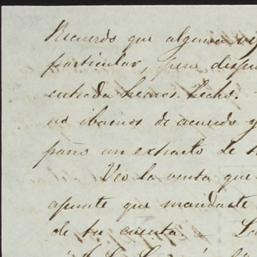 Recuerdo que alguna ve
particular, pero despu
entrada hemos hecho.
no ibamos de acuerdo y
paño un extracto de
Veo la venta que
apunte que mandaste
de tu cuenta.